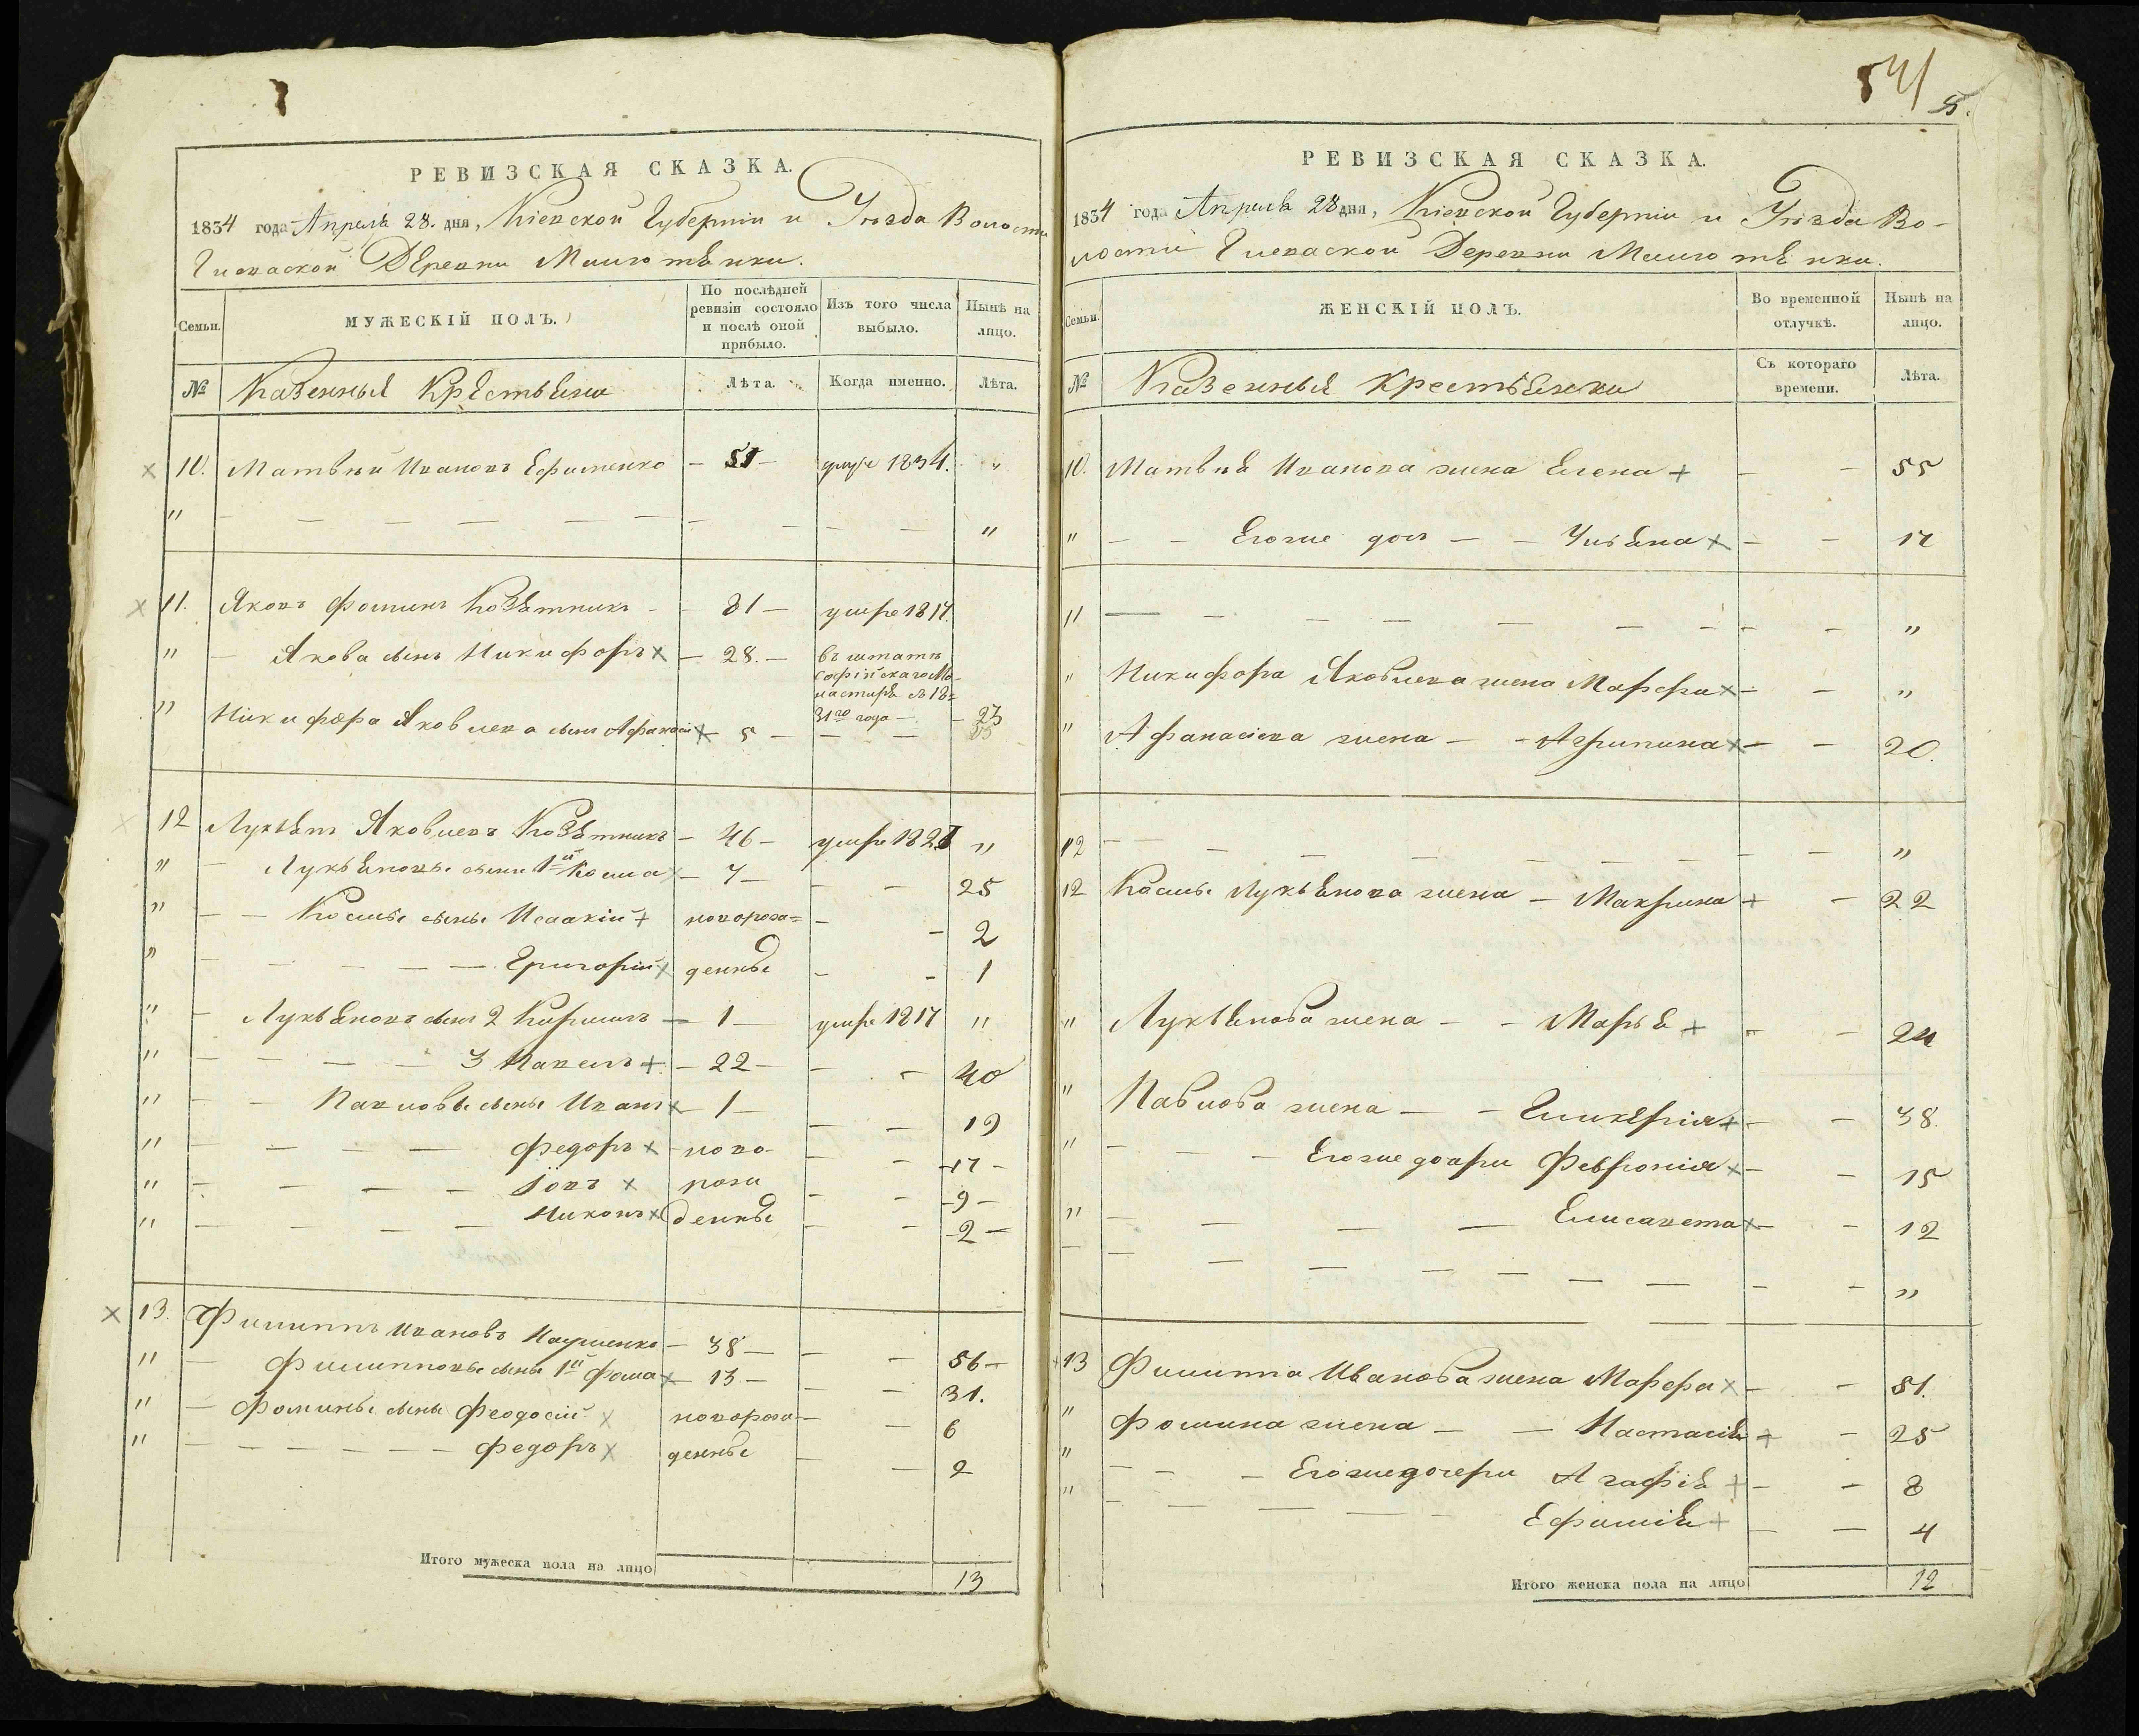 РЕВИЗСКАЯ СКАЗКА.
1834 года Апреля 28. дня, Кіевской Губерніи и Уѣзда Волости
Гневаской Деревни
Семьи.
МУЖЕСКІЙ ПОЛЪ.
По послѣдней ревизіи состояло и послѣ оной прибыло.
Изъ того числа выбыло.
Нынѣ на лицо.
№
Казенныя Крестьяна
Лѣта.
Когда именно.
Лѣта.
10. Матвѣй Ивановъ Ефименко - 51 - умре 1834. "
" - - - - - - - - - - "
11. Яковъ Фоминъ Козятникъ - 81 - умре 1817.
" - Якова сынъ Никифоръ x - 28. - въ штатъ
Софійскаго Мо-
настиря съ 18=
31го года -
" Никифора Яковлева сынъ Афанасій x - 5 - - - 23
12 Лукьянъ Яковлевъ Козятникъ - 46 - умре 1821 "
" - Лукьяновы сыни 1й Косма x - 7 - - - 25
" - - Космы сыны Исаакій + новорож= - - 2
" - - - - - Григорій x денные - - 1
" - Лукьяновъ сынъ 2 Кирилъ - 1 - умре 1817 "
" - - - - 3 Павелъ + - 22 - - - 40
" - - Павловы сыны Иванъ x - 1 - - - 19
" - - - - Федоръ x ново- - - 17 -
" - - - - Іовъ x рож - - 9 -
" - - - - Никонъ x денные - - 2 -
x 13. Филиппъ Ивановъ Науменко - 38 - - - 56 -
" - Филипповы сыны 1й Фома x - 13 - - - 31.
" - Фомины сыны Феодосій x новорож - - 6
" - - - - - - Федоръ x денные - - 2
Итого мужеска пола на лицо 13
54
РЕВИЗСКАЯ СКАЗКА.
1834 года Апреля 28 дня, Кіевской Губерніи и Уѣзда Во-
лости Гневаской Деревни
Семьи.
ЖЕНСКІЙ ПОЛЪ.
Во временной отлучкѣ.
Нынѣ на лицо.
№
Казенныя Крестьянки
Съ котораго времени.
Лѣта.
10. Матвѣя Иванова жена Елена + - - 55
" - - Егоже дочь - - Ульяна x - - 17
11 - - - - - - - - - "
" Никифора Яковлева жена Марфа x - - "
" Афанасіева жена - - Агрипина x - - 20.
12 - - - - - - - - - - "
12 Космы Лукьянова жена - Макрина + - 22
" Лукьянова жена - - Марья + - - 24
" Павлова жена - - Гликерія + - - 38.
" - - - Егоже дочери Февронія x - - 15
" - - - - Елисавета x - - 12
- - - - - - - - - - "
+ 13 Филиппа Иванова жена Марфа x - - 51.
" Фомина жена - - Настасія + - 25
" - - - Егоже дочери Агафія + - - 8
" - - - - - Ефимія + - - 4
Итого женска пола на лицо 12